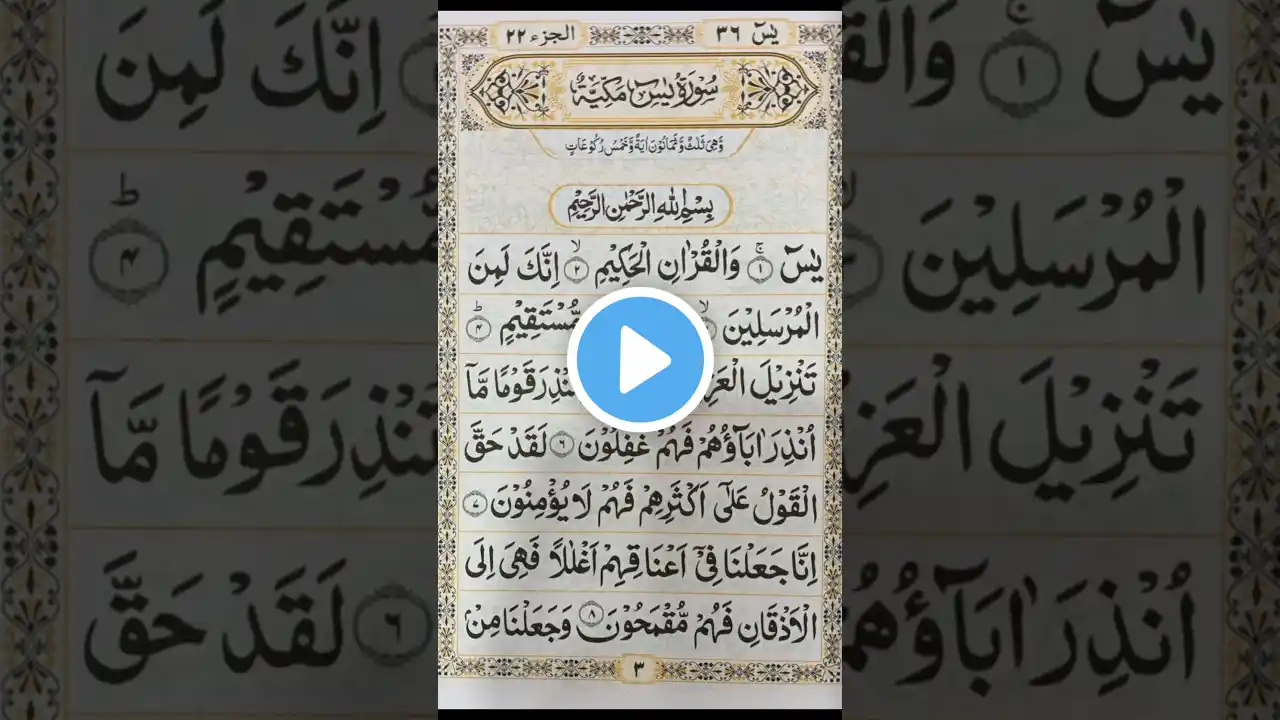 يٰسٓ ٣٦
الجزء ٢٢
سُوْرَةُ يٰسٓ مَكِّيَّةٌ
وَهِيَ ثَلٰثٌ وَّثَمَانُوْنَ اٰيَةً وَّخَمْسُ رُكُوْعَاتٍ
بِسْمِ اللّٰهِ الرَّحْمٰنِ الرَّحِيْمِ
يٰسٓ ۚ ١ وَالْقُرْاٰنِ الْحَكِيْمِ ۙ ٢ اِنَّكَ لَمِنَ
الْمُرْسَلِيْنَ ۙ مُّسْتَقِيْمٍ ؕ ۴
تَنْزِيْلَ قَوْمًا مَّاۤ
اُنْذِرَ اٰبَآؤُهُمْ فَهُمْ غٰفِلُوْنَ ٦ لَقَدْ حَقَّ
الْقَوْلُ عَلٰٓى اَكْثَرِهِمْ فَهُمْ لَا يُؤْمِنُوْنَ ٧
اِنَّا جَعَلْنَا فِيْۤ اَعْنَاقِهِمْ اَغْلٰلًا فَهِيَ اِلَى
الْاَذْقَانِ فَهُمْ مُّقْمَحُوْنَ ٨ وَجَعَلْنَا مِنْ
٣